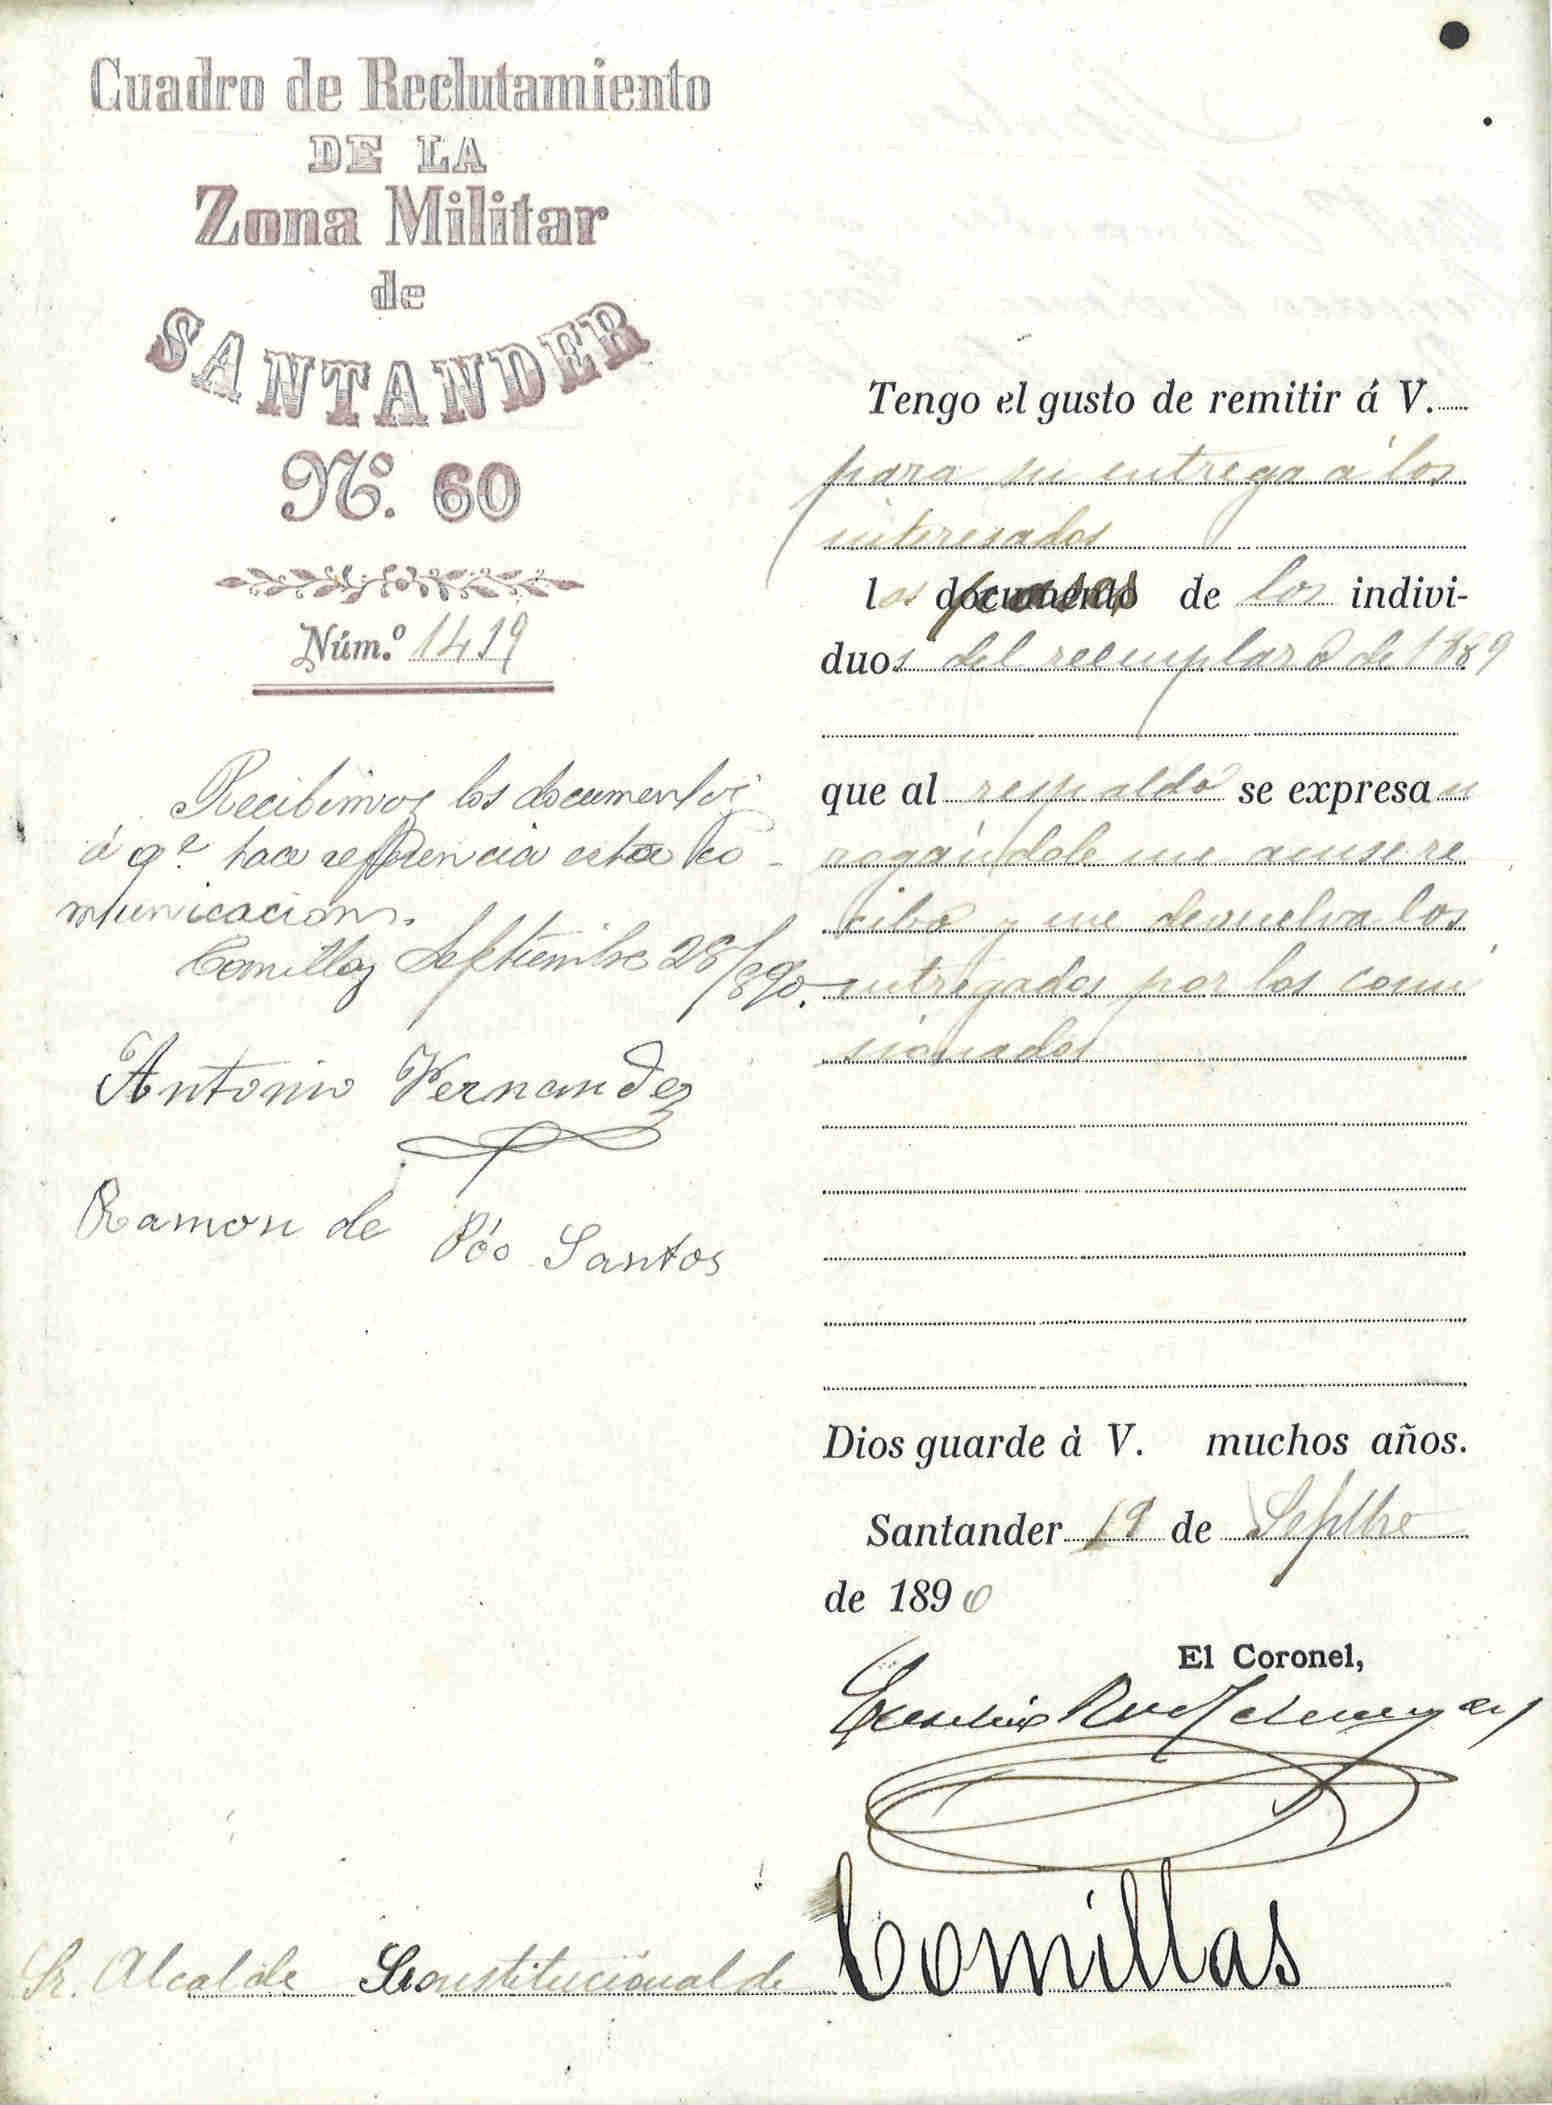 Cuadro de Reclutamiento
DE LA
Zona Militar
de
SANTANDER
Nº. 60
Núm.º 1419
Recibimos los documentos
á qe hace referencia esta co-
municacion.
Comillas Septiembre 28/890.
Antonio Fernandez
Ramon de Póo Santos
Tengo el gusto de remitir á V.
para su entrega á los
interesados
los pases de los indivi-
duos del reemplazo de 1889
que al respaldo se expresan
rogándole me acuse re
cibo y me devuelva los
entregados por los comi
sionados
Dios guarde á V. muchos años.
Santander 19 de Septbre
de 1890
El Coronel,
Eusebio Ruiz
Sr. Alcalde Constitucional de Comillas